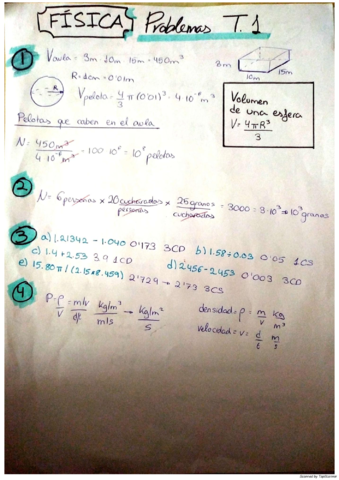 FÍSICA Problemas T.1
① V aula = 3m · 10m · 15m = 450m³
3m
10m
15m
R
R = 1cm = 0'01m
V pelota = 4/3 π (0'01)³ = 4·10⁻⁶ m³
Volumen
de una esfera
V = 4πR³/3
Pelotas que caben en el aula
N = 450m³/4·10⁻⁶m³ = 100·10⁶ = 10⁸ pelotas
②
N = 6 personas × 20 cucharadas/personas × 26 granos/cucharadas = 3000 = 3·10³ ≈ 10³ granos
③ a) 1.21342 - 1.040 0'173 3CD b) 1.58÷0.03 0'05 1CS
c) 1.4+2.53 3.9 1CD d) 2.456-2.453 0'003 3CD
e) 15.80π/(2.15×8.459) 2'729 → 2'73 3CS
④
P = ρ/v = m/v / d/t kg/m³ / m/s → kg/m³ / s
densidad = ρ = m/v kg/m³
velocidad = v = d/t m/s
Scanned by TapScanner